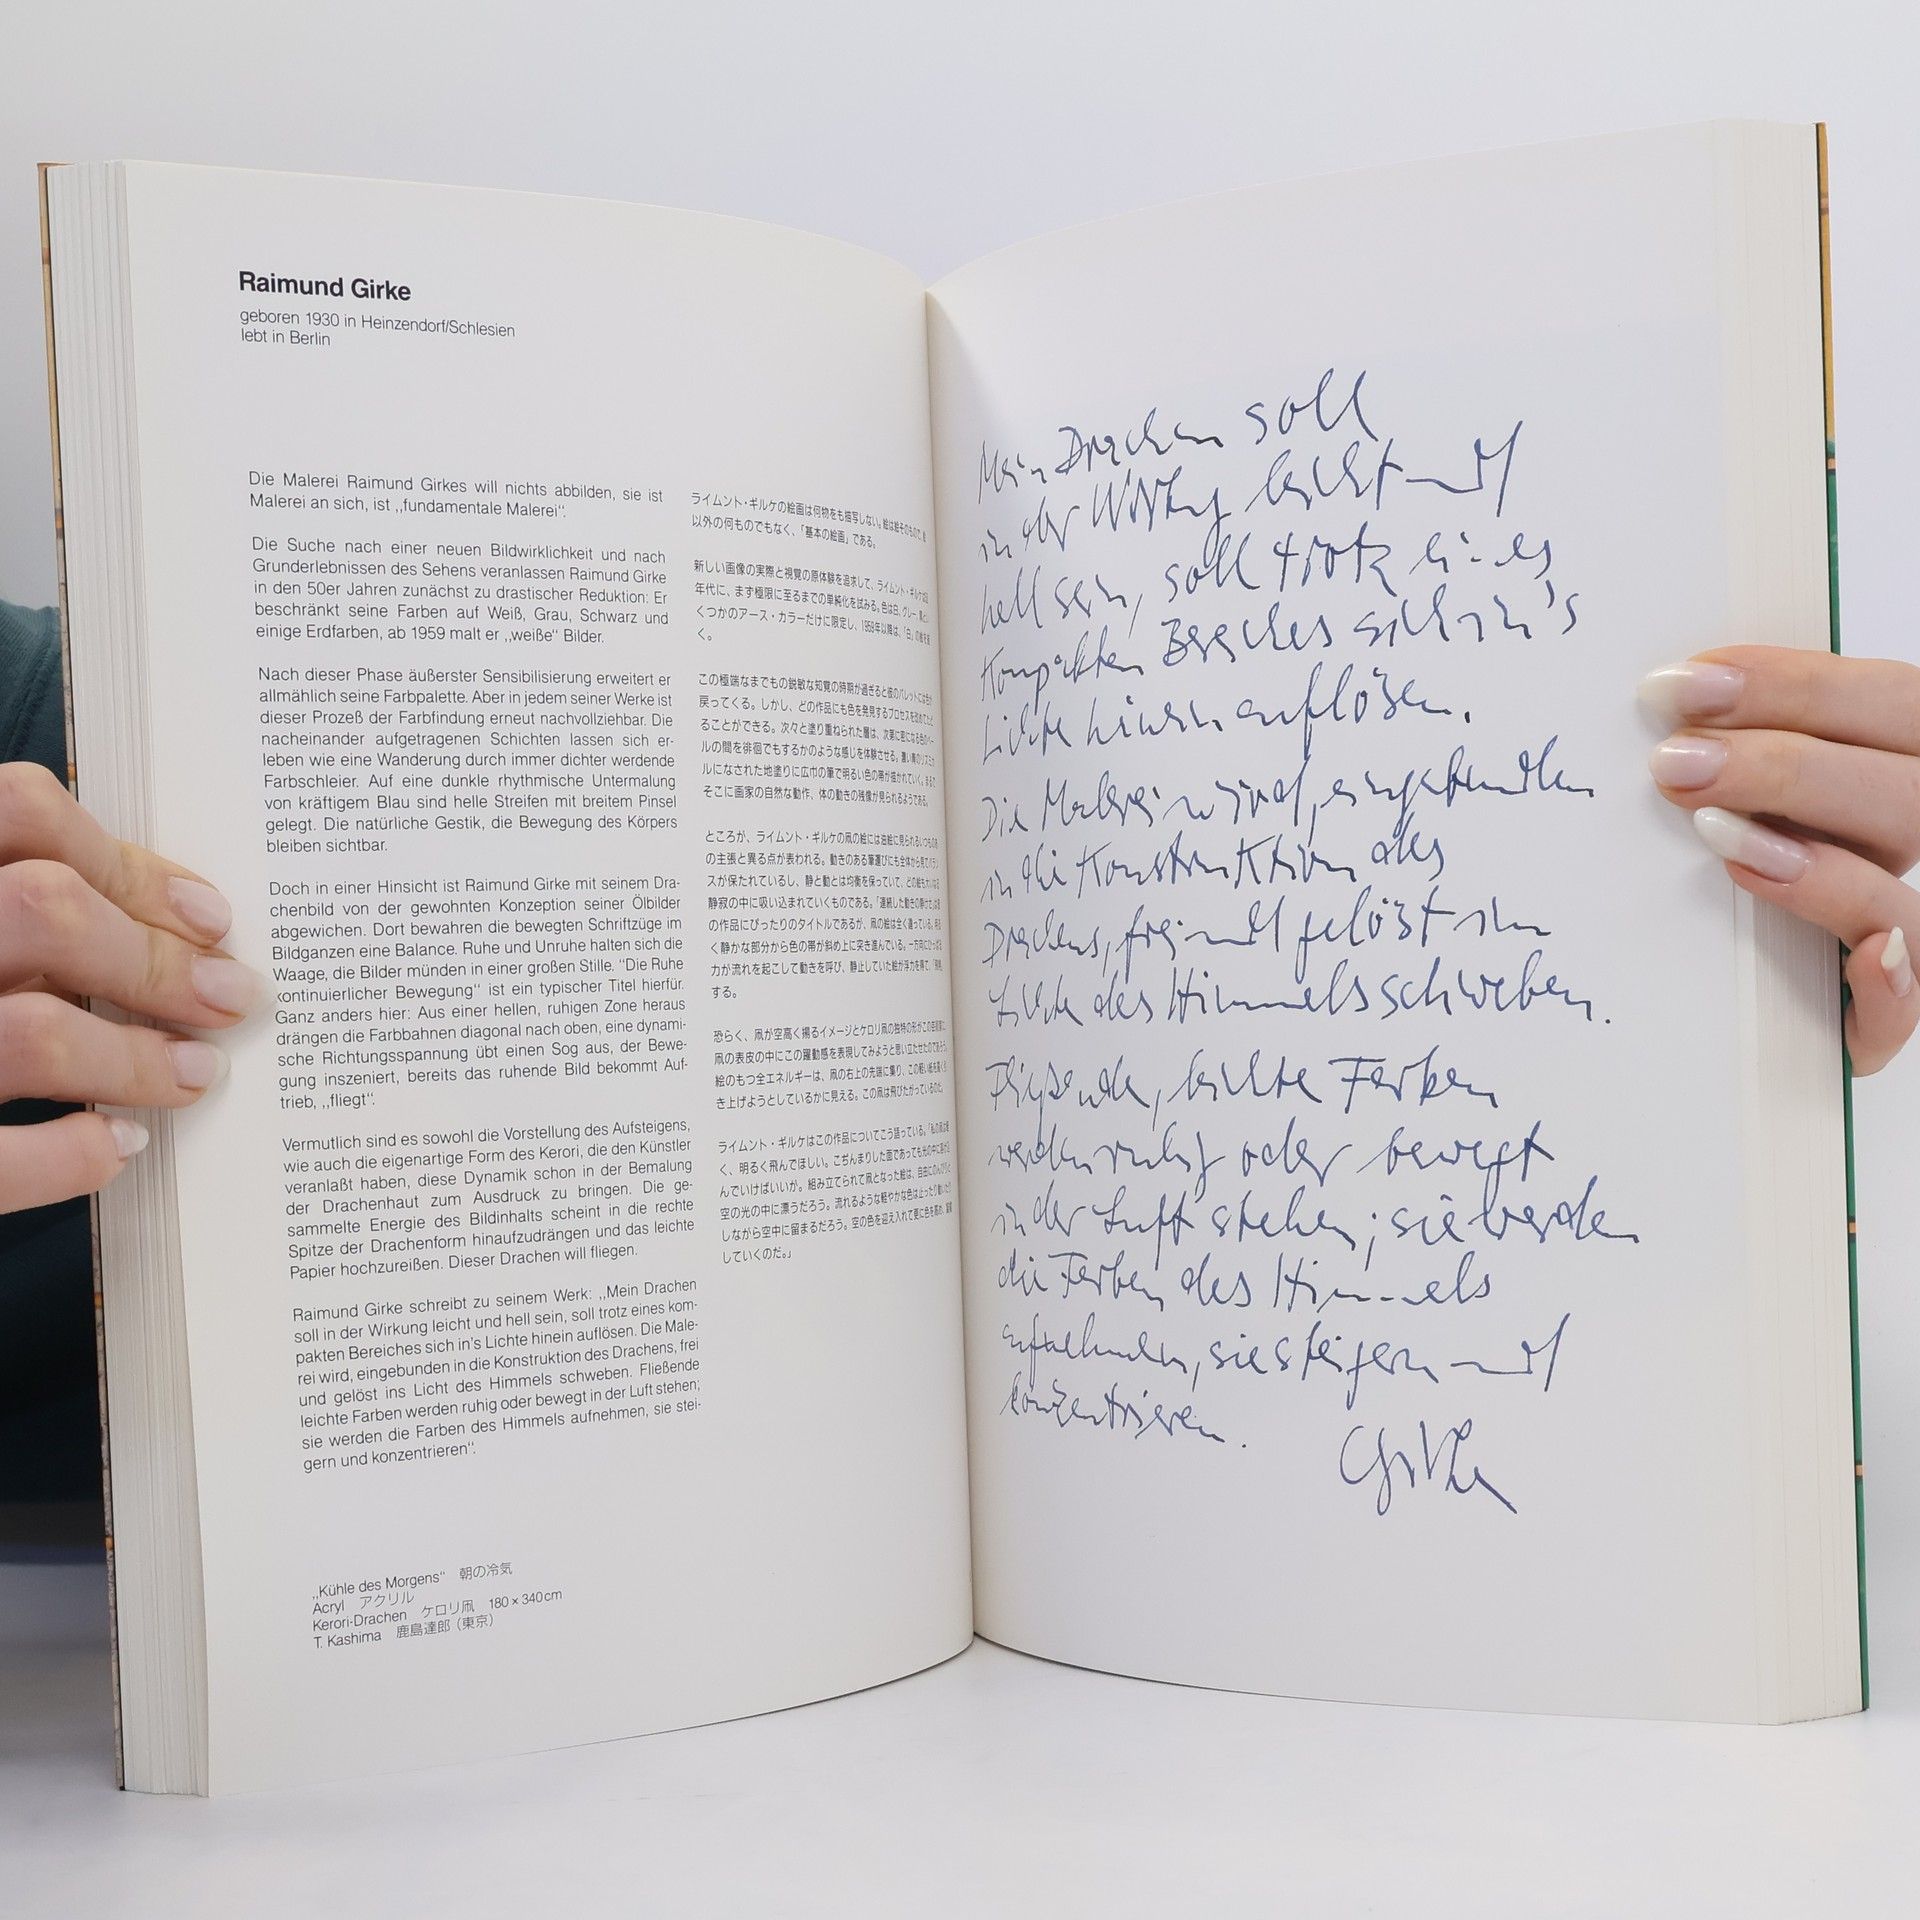 Raimund Girke
geboren 1930 in Heinzendorf/Schlesien
lebt in Berlin
Die Malerei Raimund Girkes will nichts abbilden, sie ist
Malerei an sich, ist ,,fundamentale Malerei“.
Die Suche nach einer neuen Bildwirklichkeit und nach
Grunderlebnissen des Sehens veranlassen Raimund Girke
in den 50er Jahren zunächst zu drastischer Reduktion: Er
beschränkt seine Farben auf Weiß, Grau, Schwarz und
einige Erdfarben, ab 1959 malt er ,,weiße“ Bilder.
Nach dieser Phase äußerster Sensibilisierung erweitert er
allmählich seine Farbpalette. Aber in jedem seiner Werke ist
dieser Prozeß der Farbfindung erneut nachvollziehbar. Die
nacheinander aufgetragenen Schichten lassen sich er-
leben wie eine Wanderung durch immer dichter werdende
Farbschleier. Auf eine dunkle rhythmische Untermalung
von kräftigem Blau sind helle Streifen mit breitem Pinsel
gelegt. Die natürliche Gestik, die Bewegung des Körpers
bleiben sichtbar.
Doch in einer Hinsicht ist Raimund Girke mit seinem Dra-
chenbild von der gewohnten Konzeption seiner Ölbilder
abgewichen. Dort bewahren die bewegten Schriftzüge im
Bildganzen eine Balance. Ruhe und Unruhe halten sich die
Waage, die Bilder münden in einer großen Stille. “Die Ruhe
kontinuierlicher Bewegung“ ist ein typischer Titel hierfür.
Ganz anders hier: Aus einer hellen, ruhigen Zone heraus
drängen die Farbbahnen diagonal nach oben, eine dynami-
sche Richtungsspannung übt einen Sog aus, der Bewe-
gung inszeniert, bereits das ruhende Bild bekommt Auf-
trieb, ,,fliegt“.
Vermutlich sind es sowohl die Vorstellung des Aufsteigens,
wie auch die eigenartige Form des Kerori, die den Künstler
veranlaßt haben, diese Dynamik schon in der Bemalung
der Drachenhaut zum Ausdruck zu bringen. Die ge-
sammelte Energie des Bildinhalts scheint in die rechte
Spitze der Drachenform hinaufzudrängen und das leichte
Papier hochzureißen. Dieser Drachen will fliegen.
Raimund Girke schreibt zu seinem Werk: ,,Mein Drachen
soll in der Wirkung leicht und hell sein, soll trotz eines kom-
pakten Bereiches sich in's Lichte hinein auflösen. Die Male-
rei wird, eingebunden in die Konstruktion des Drachens, frei
und gelöst ins Licht des Himmels schweben. Fließende
leichte Farben werden ruhig oder bewegt in der Luft stehen;
sie werden die Farben des Himmels aufnehmen, sie stei-
gern und konzentrieren“.
ライムント・ギルケの絵画は何物をも描写しない。絵は絵そのもので、
以外の何ものでもなく、「基本の絵画」である。
新しい画像の実際と視覚の原体験を追求して、ライムント・ギルケは
年代に、まず極限に至るまでの単純化を試みる。色は白、グレー、黒と
くつかのアース・カラーだけに限定し、1959年以降は、「白」の絵を描
く。
この極端なまでもの鋭敏な知覚の時期が過ぎると彼のパレットには色が
戻ってくる。しかし、どの作品にも色を発見するプロセスを
ることができる。次々と塗り重ねられた層は、次第に密になる色のベー
ルの間を徘徊でもするかのような感じを体験させる。
ルになされた地塗りに広巾の筆で明るい色の帯が描かれていく。まるで
そこに画家の自然な動作、体の動きの残像が見られるようである。
ところが、ライムント・ギルケの凧の絵には油絵に見られるいつもの
の主張と異る点が表われる。動きのある筆運びにも全体から見てバラン
スが保たれているし、静と動とは均衡を保っていて、どの絵も大いなる
静寂の中に吸い込まれていくものである。「連続した動きの静けさ」は
の作品にぴったりのタイトルであるが、凧の絵は全く違っている。
く静かな部分から色の帯が斜め上に突き進んでいる。一方向に
力が流れを起こして動きを呼び、静止していた絵が浮力を得て、「飛
する。
恐らく、凧が空高く揚るイメージとケロリ凧の独特の形がこの芸術家に
凧の表皮の中にこの躍動感を表現してみようと思い立たせたのであろう。
絵のもつ全エネルギーは、凧の右上の先端に集り、この軽い紙を高く引
き上げようとしているかに見える。この凧は飛びたがっているのだ。
ライムント・ギルケはこの作品についてこう語っている。「私の凧は軽
く、明るく飛んでほしい。こぢんまりした面であっても光の中に溶け込
んでいけばいいが。組み立てられて凧となった絵は、自由にのんびりと
空の光の中に漂うだろう。流れるような軽やかな色は止ったり動いたり
しながら空中に留まるだろう。空の色を迎え入れて更に色を高め、凝縮
していくのだ。」
,,Kühle des Morgens“ 朝の冷気
Acryl アクリル
Kerori-Drachen ケロリ凧 180 × 340 cm
T. Kashima 鹿島達郎（東京）
Mein Drachen soll
in der Wirkung leicht und
hell sein, soll trotz eines
kompakten Bereiches sich in's
Lichte hinein auflösen.
Die Malerei wird, eingebunden
in die Konstruktion des
Drachens, frei und gelöst im
Lichte des Himmels schweben.
Fließende, leichte Farben
werden ruhig oder bewegt
in der Luft stehen; sie werden
die Farben des Himmels
aufnehmen, sie steigern und
konzentrieren.
Girke